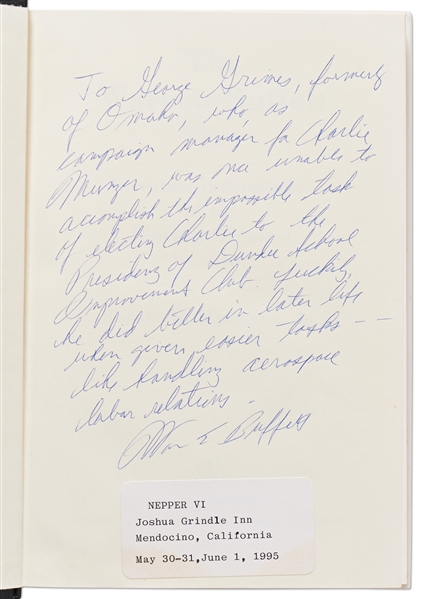 To George Grimes, formerly
of Omaha, who, as
campaign manager for Charlie
Munger, was once unable to
accomplish the impossible task
of electing Charlie to the
Presidency of Dundee School
Improvement Club. Luckily,
he did better in later life
when given easier tasks --
like handling aerospace
labor relations.
Warren E Buffett
NEPPER VI
Joshua Grindle Inn
Mendocino, California
May 30-31,June 1, 1995